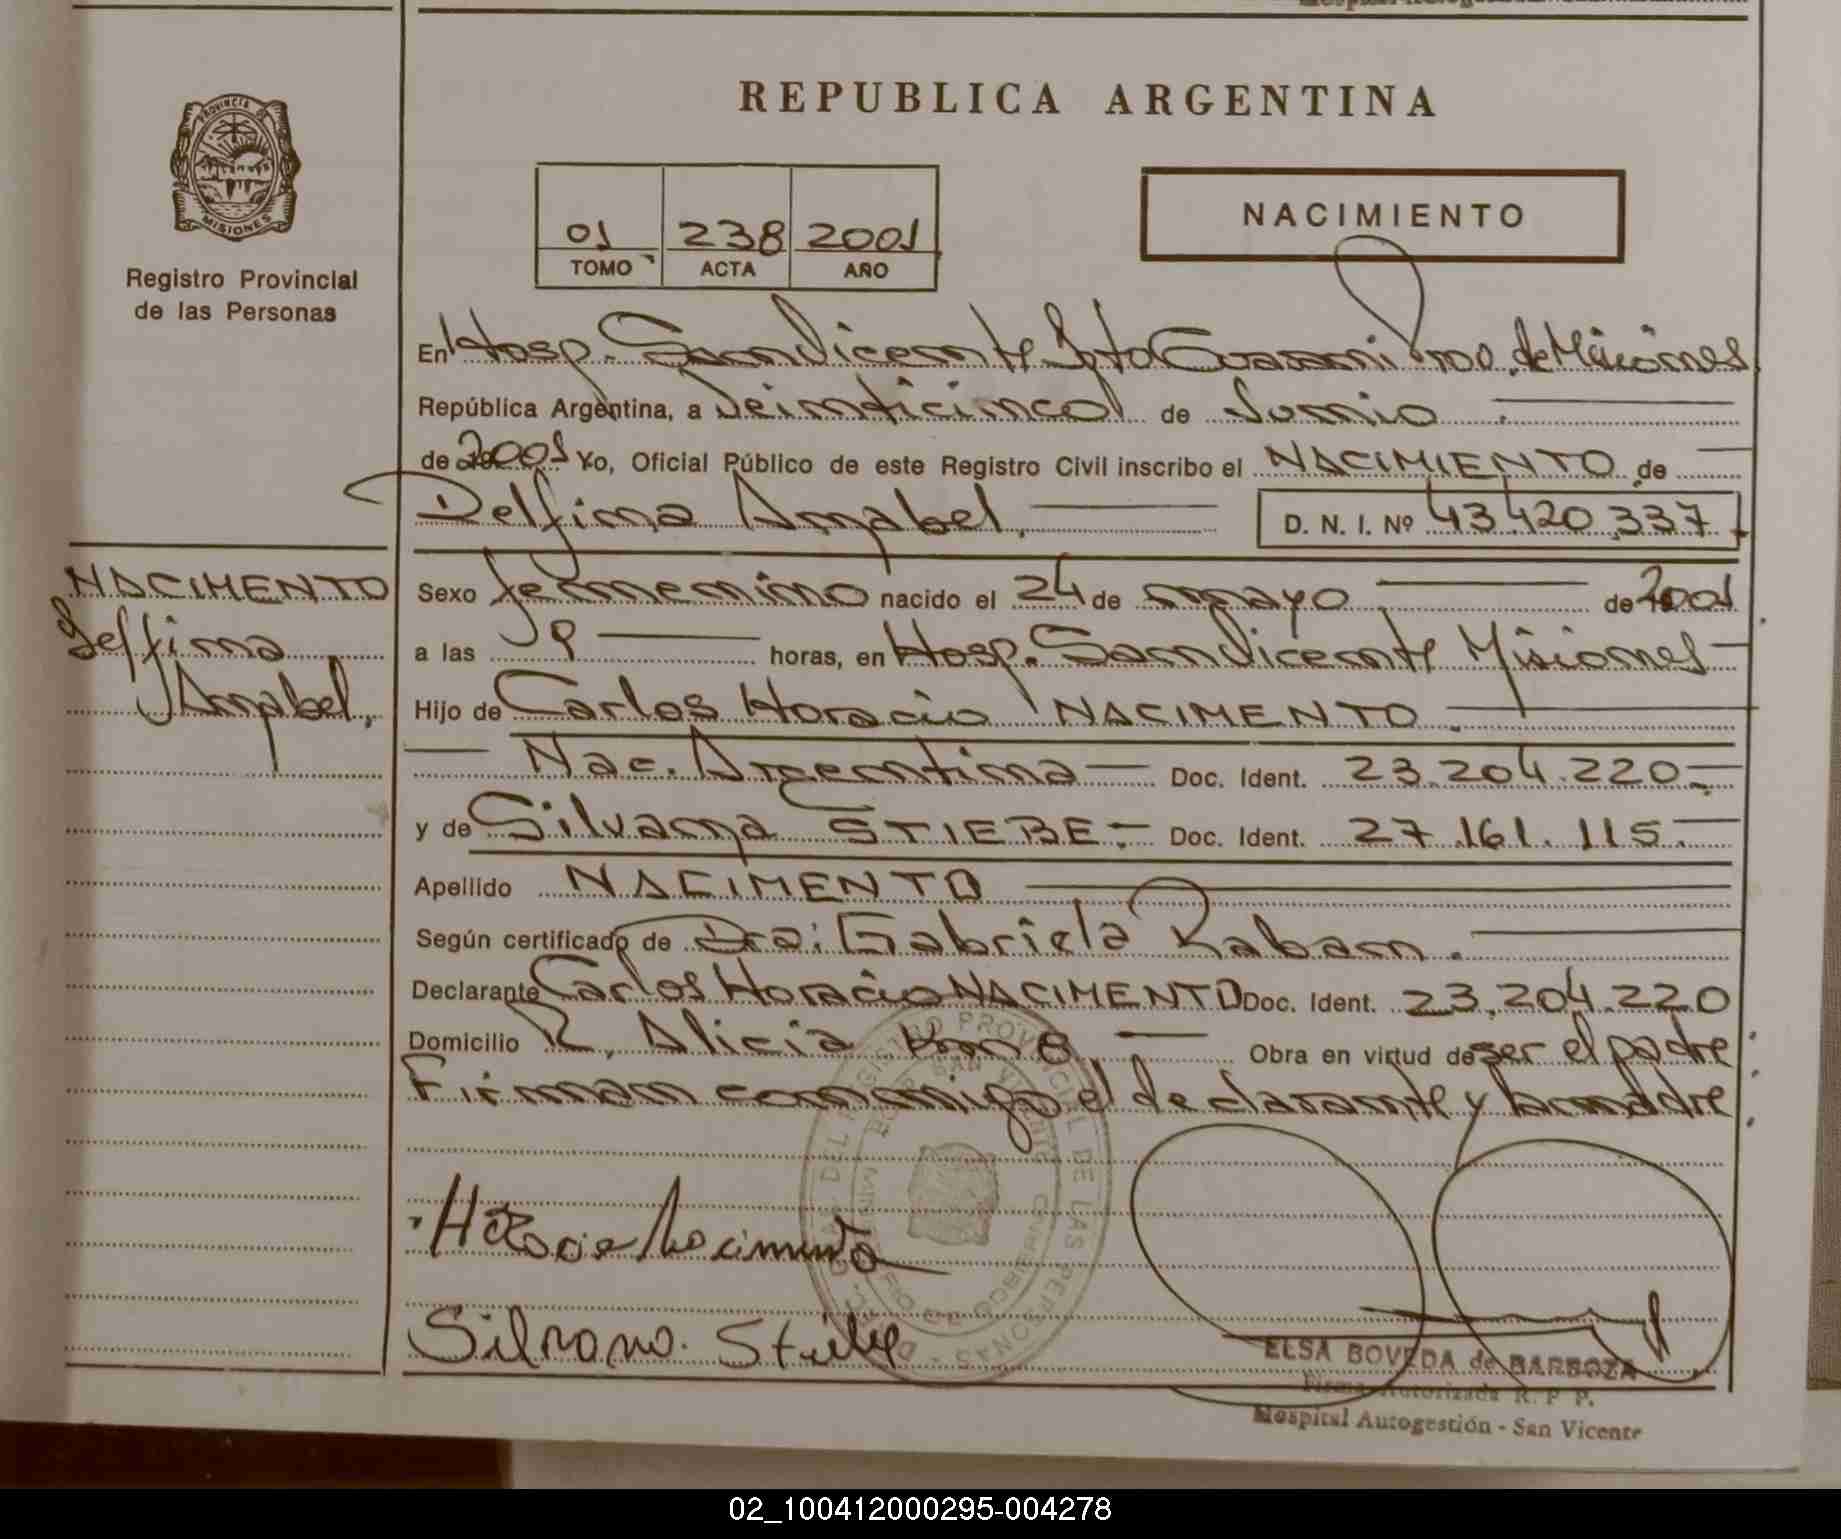 REPUBLICA ARGENTINA
PROVINCIA DE
MISIONES
Registro Provincial
de las Personas
01 238 2001
TOMO ACTA AÑO
NACIMIENTO
En Hosp. San Vicente Dpto Guarani Pro. de Misiones
República Argentina, a Veinticinco de Junio
de 2001 Yo, Oficial Público de este Registro Civil inscribo el NACIMIENTO de
Delfina Anabel, D. N. I. Nº 43.420.337
NACIMENTO
Delfina
Anabel,
Sexo femenino nacido el 24 de mayo de 2001
a las horas, en Hosp. San Vicente Misiones
Hijo de Carlos Horacio NACIMENTO
Nac. Argentina Doc. Ident. 23.204.220
y de Silvana STIEBE Doc. Ident. 27.161.115
Apellido NACIMENTO
Según certificado de Dra: Gabriela Raban.
Declarante Carlos Horacio NACIMENTO Doc. Ident. 23.204.220
Domicilio R. Alicia Obra en virtud de ser el padre
Firman conmigo el declarante y la madre
Silvana Stiebe
ELSA BOVEDA de BARBOZA
Firma Autorizada R. P. P.
Hospital Autogestión - San Vicente
02_100412000295-004278